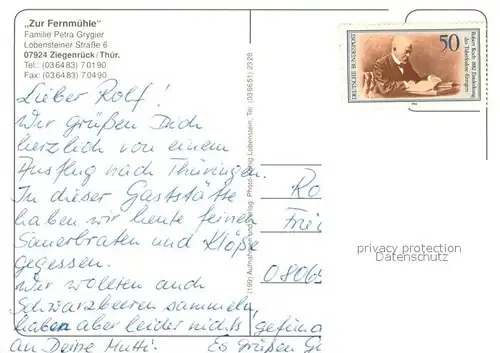 „Zur Fernmühle"
Familie Petra Grygier
Lobensteiner Straße 6
07924 Ziegenrück/Thür.
Tel.: (03 64 83) 7 01 90
Fax: (03 64 83) 7 04 90
Lieber Rolf!
Wir grüßen Dich
herzlich von einem
Ausflug nach Thüringen.
In dieser Gaststätte
haben wir heute feinen
Sauerbraten und Klöße
gegessen.
Wir wollten auch
Schwarzbeeren sammeln,
haben aber leider nichts gefund
an Deine Mutti. Es grüßen
(199) Aufnahme und Verlag: Photo Verlag Lobenstein, Tel. (036651) 2328
DEUTSCHE BUNDESPOST
50
Robert Koch 1882 Entdeckung
des Tuberkulose-Erregers
Ro
Frie
08065
privacy protection
Datenschutz